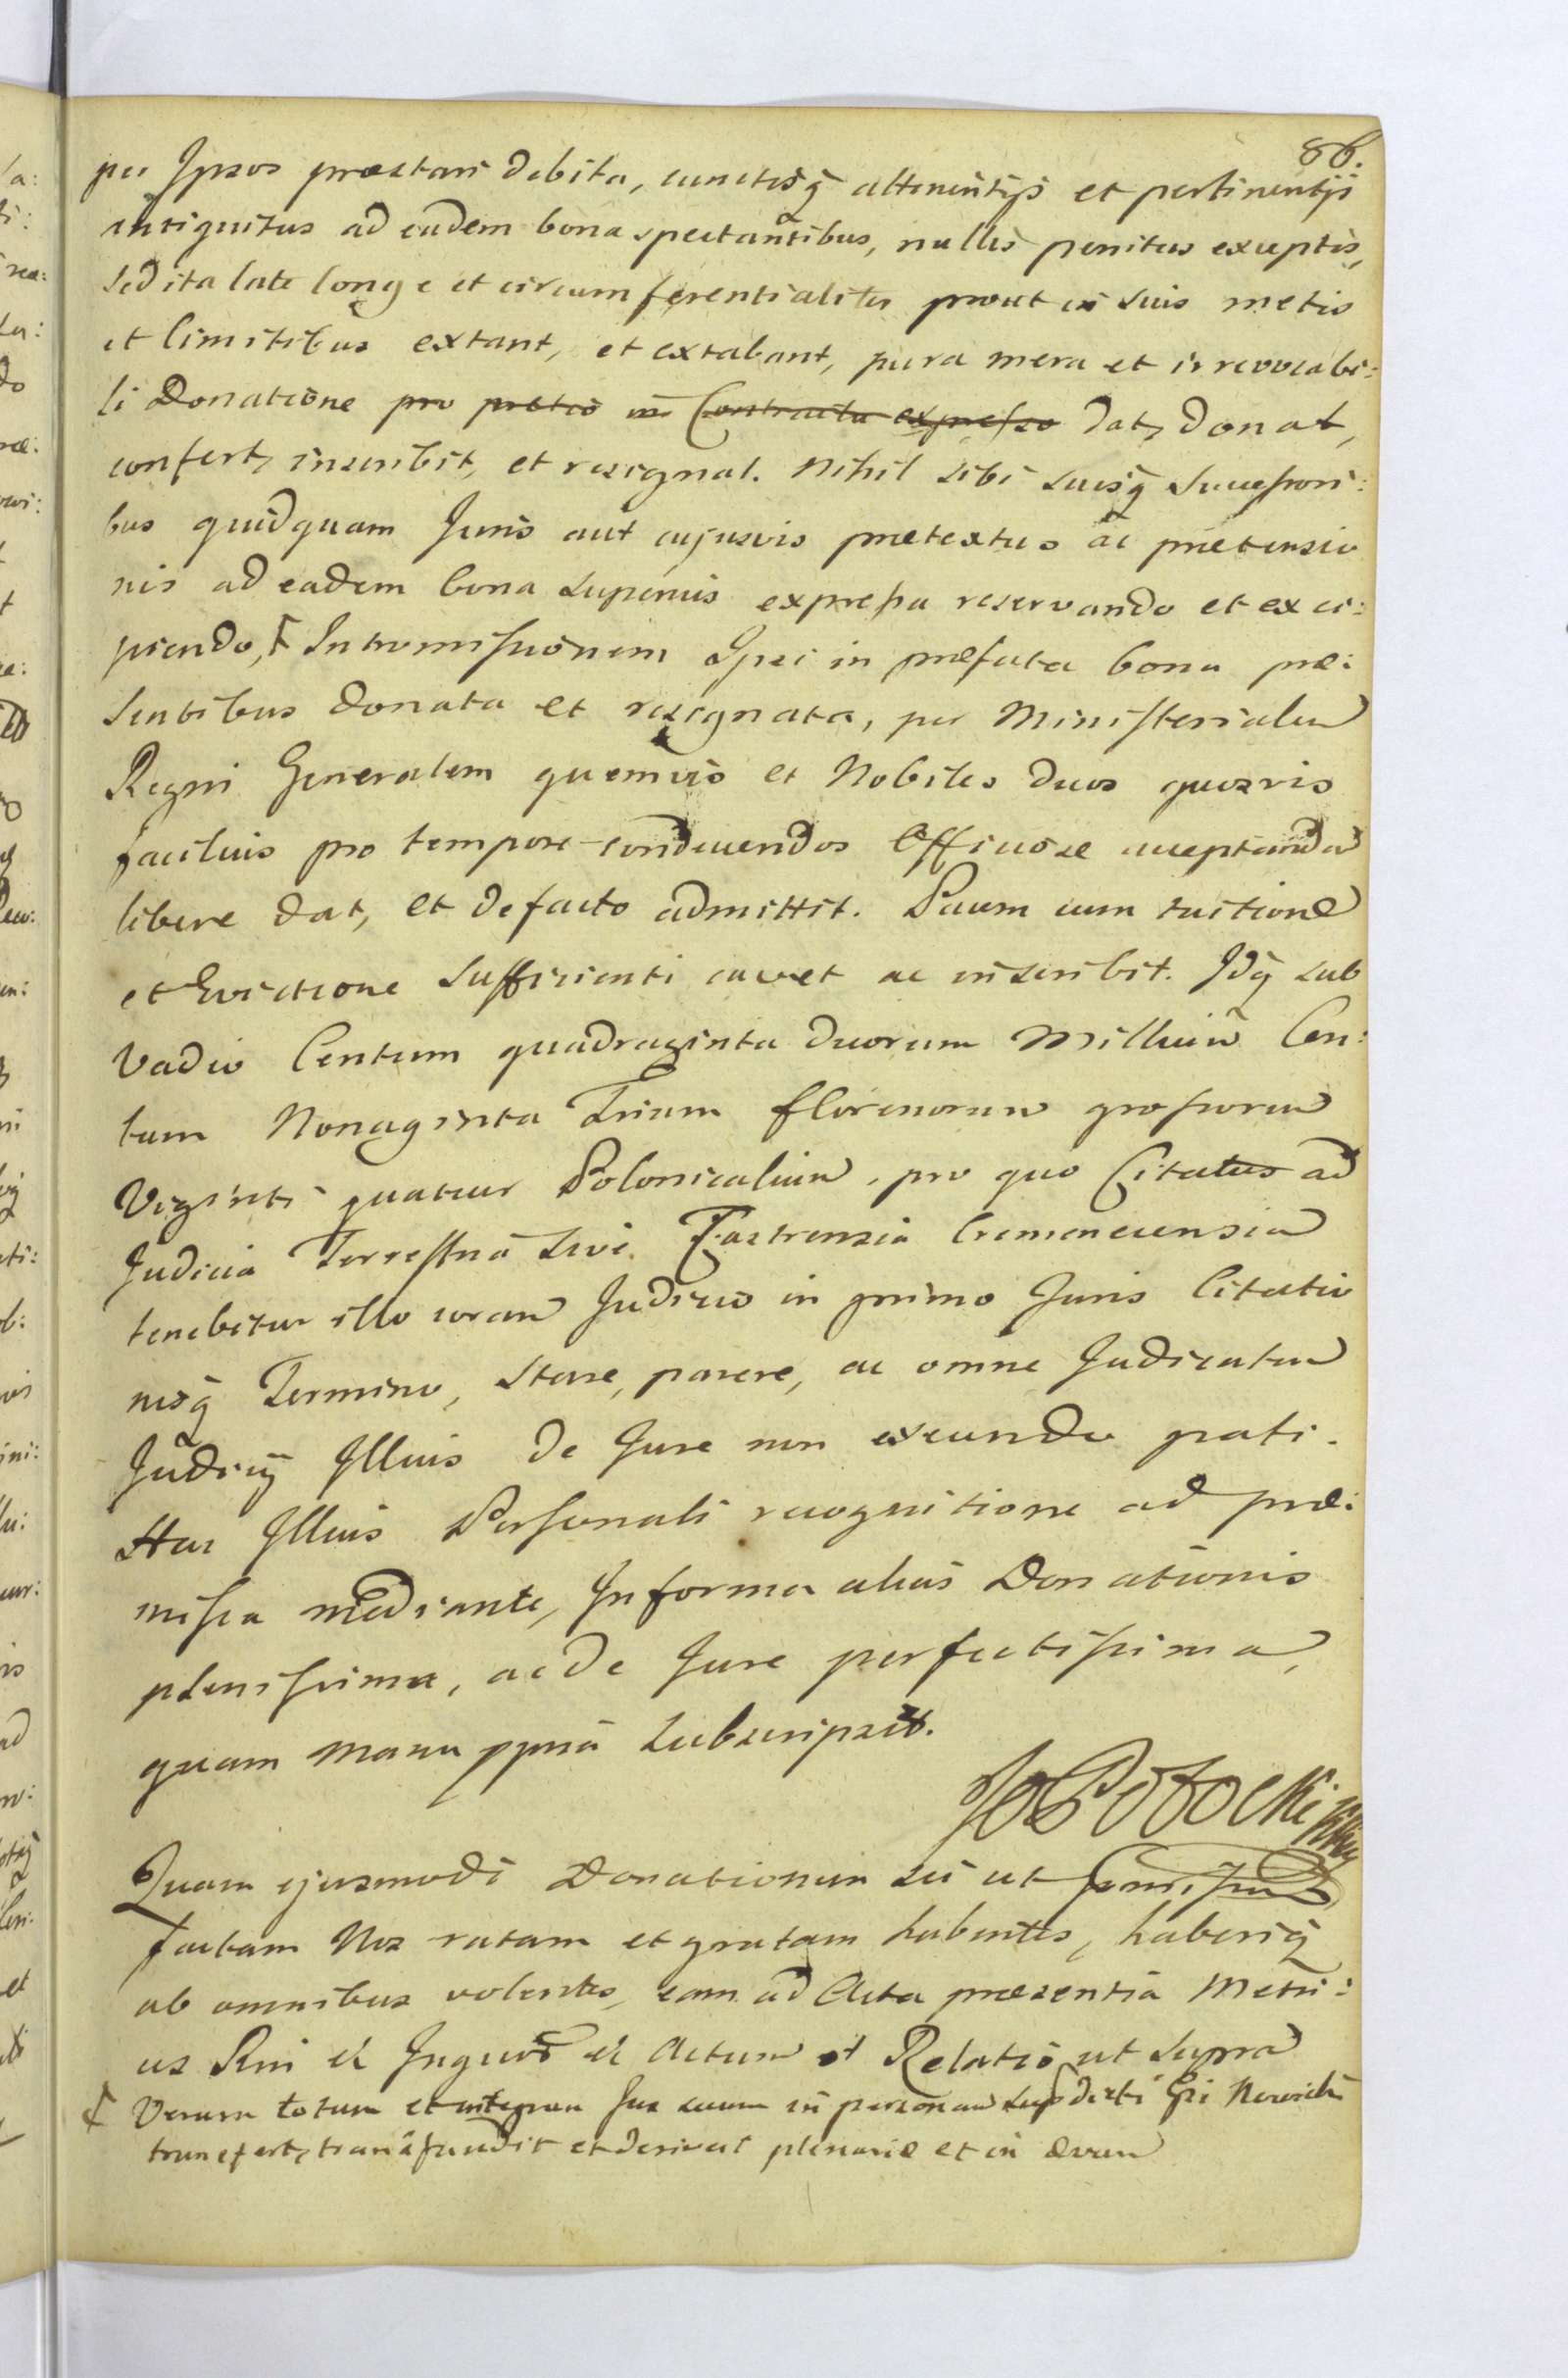 86.
per Ipsos praestari debita, cunctisq̃ attinentijs et pertinentijs
antiquitus ad eadem bona spectantibus, nullis penitus exceptis,
sed ita late longe et circumferentialiter prout in suis metis
et limitibus extant, et extabant, pura mera et irrevocabi:
li Donatione pro pretio in Contractu expresso dat, donat,
confert, inscribit, et resignat. Nihil sibi suisq̃ Successori:
bus quidquam Juris aut cujusvis praetextus ac praetensio
nis ad eadem bona superius expressa reservando et exci:
piendo, Intromissionem Ipsi in praefata bona prae:
sentibus donata et resignata, per Ministerialem
Regni Generalem quemvis et Nobiles duos quosvis
facilius pro tempore conducendos Officiose acceptandam
libere dat, et defacto admittit. Pacem cum tuitione
et Evictione sufficienti cavet ac inscribit. Idq̃ sub
Vadio Centum quadraginta duorum Millium Cen:
tum Nonaginta Trium florenorum grossorum
Viginti quatuor Polonicalium, pro quo Citatus ad
Judicia Terrestria sive Castrensia Cremenecensia
tenebitur illo coram Judicio in primo Juris Citatio
nisq̃ Termino, stare, parere, ac omne Judicatum
Judicij Illius de Jure non exeundo pati.
Hac Illius Personali recognitione ad prae:
missa mediante, In forma alias Donationis
plenissima, ac de Jure perfectissima,
quam manu ppria subscripsit.
Jos Potocki
Quam ejusmodi Donationem sic ut praemissum
factam Nos ratam et gratam habentes, haberiq̃
ab omnibus volentes, eam ad Acta praesentia Metri:
es Rni et Actum et Relatio ut supra
Verum totum et integrum Jus suum in personam supdicti Gsi
transfert, transfundit et derivat plenarie et in aevum